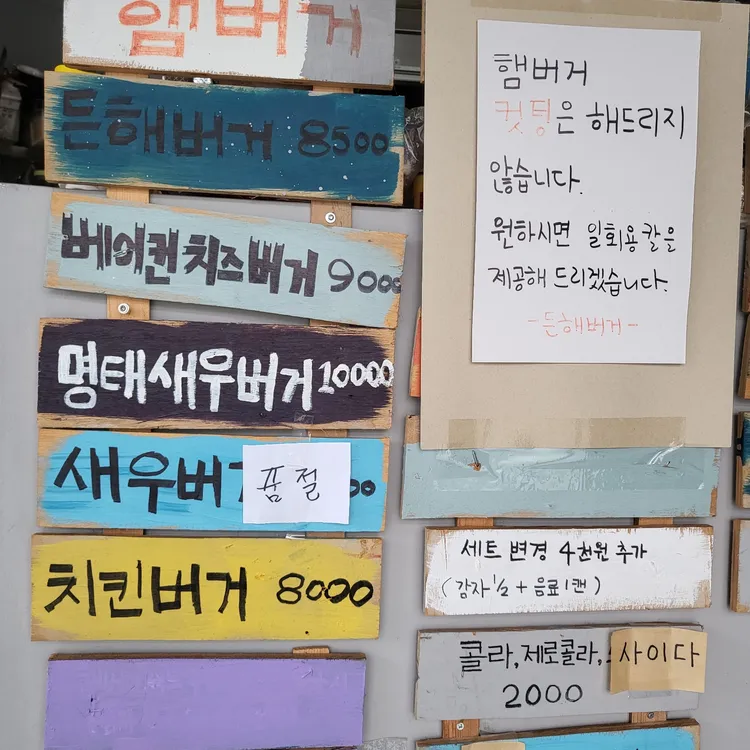 햄버거
든해버거 8500
베이컨치즈버거 9000
명태새우버거 10000
새우버
품절
00
치킨버거 8000
햄버거
컷팅은 해드리지
않습니다.
원하시면 일회용 칼을
제공해 드리겠습니다.
-든해버거-
세트 변경 4천원 추가
(감자 1/2 + 음료 1캔)
콜라, 제로콜라, 사이다
2000